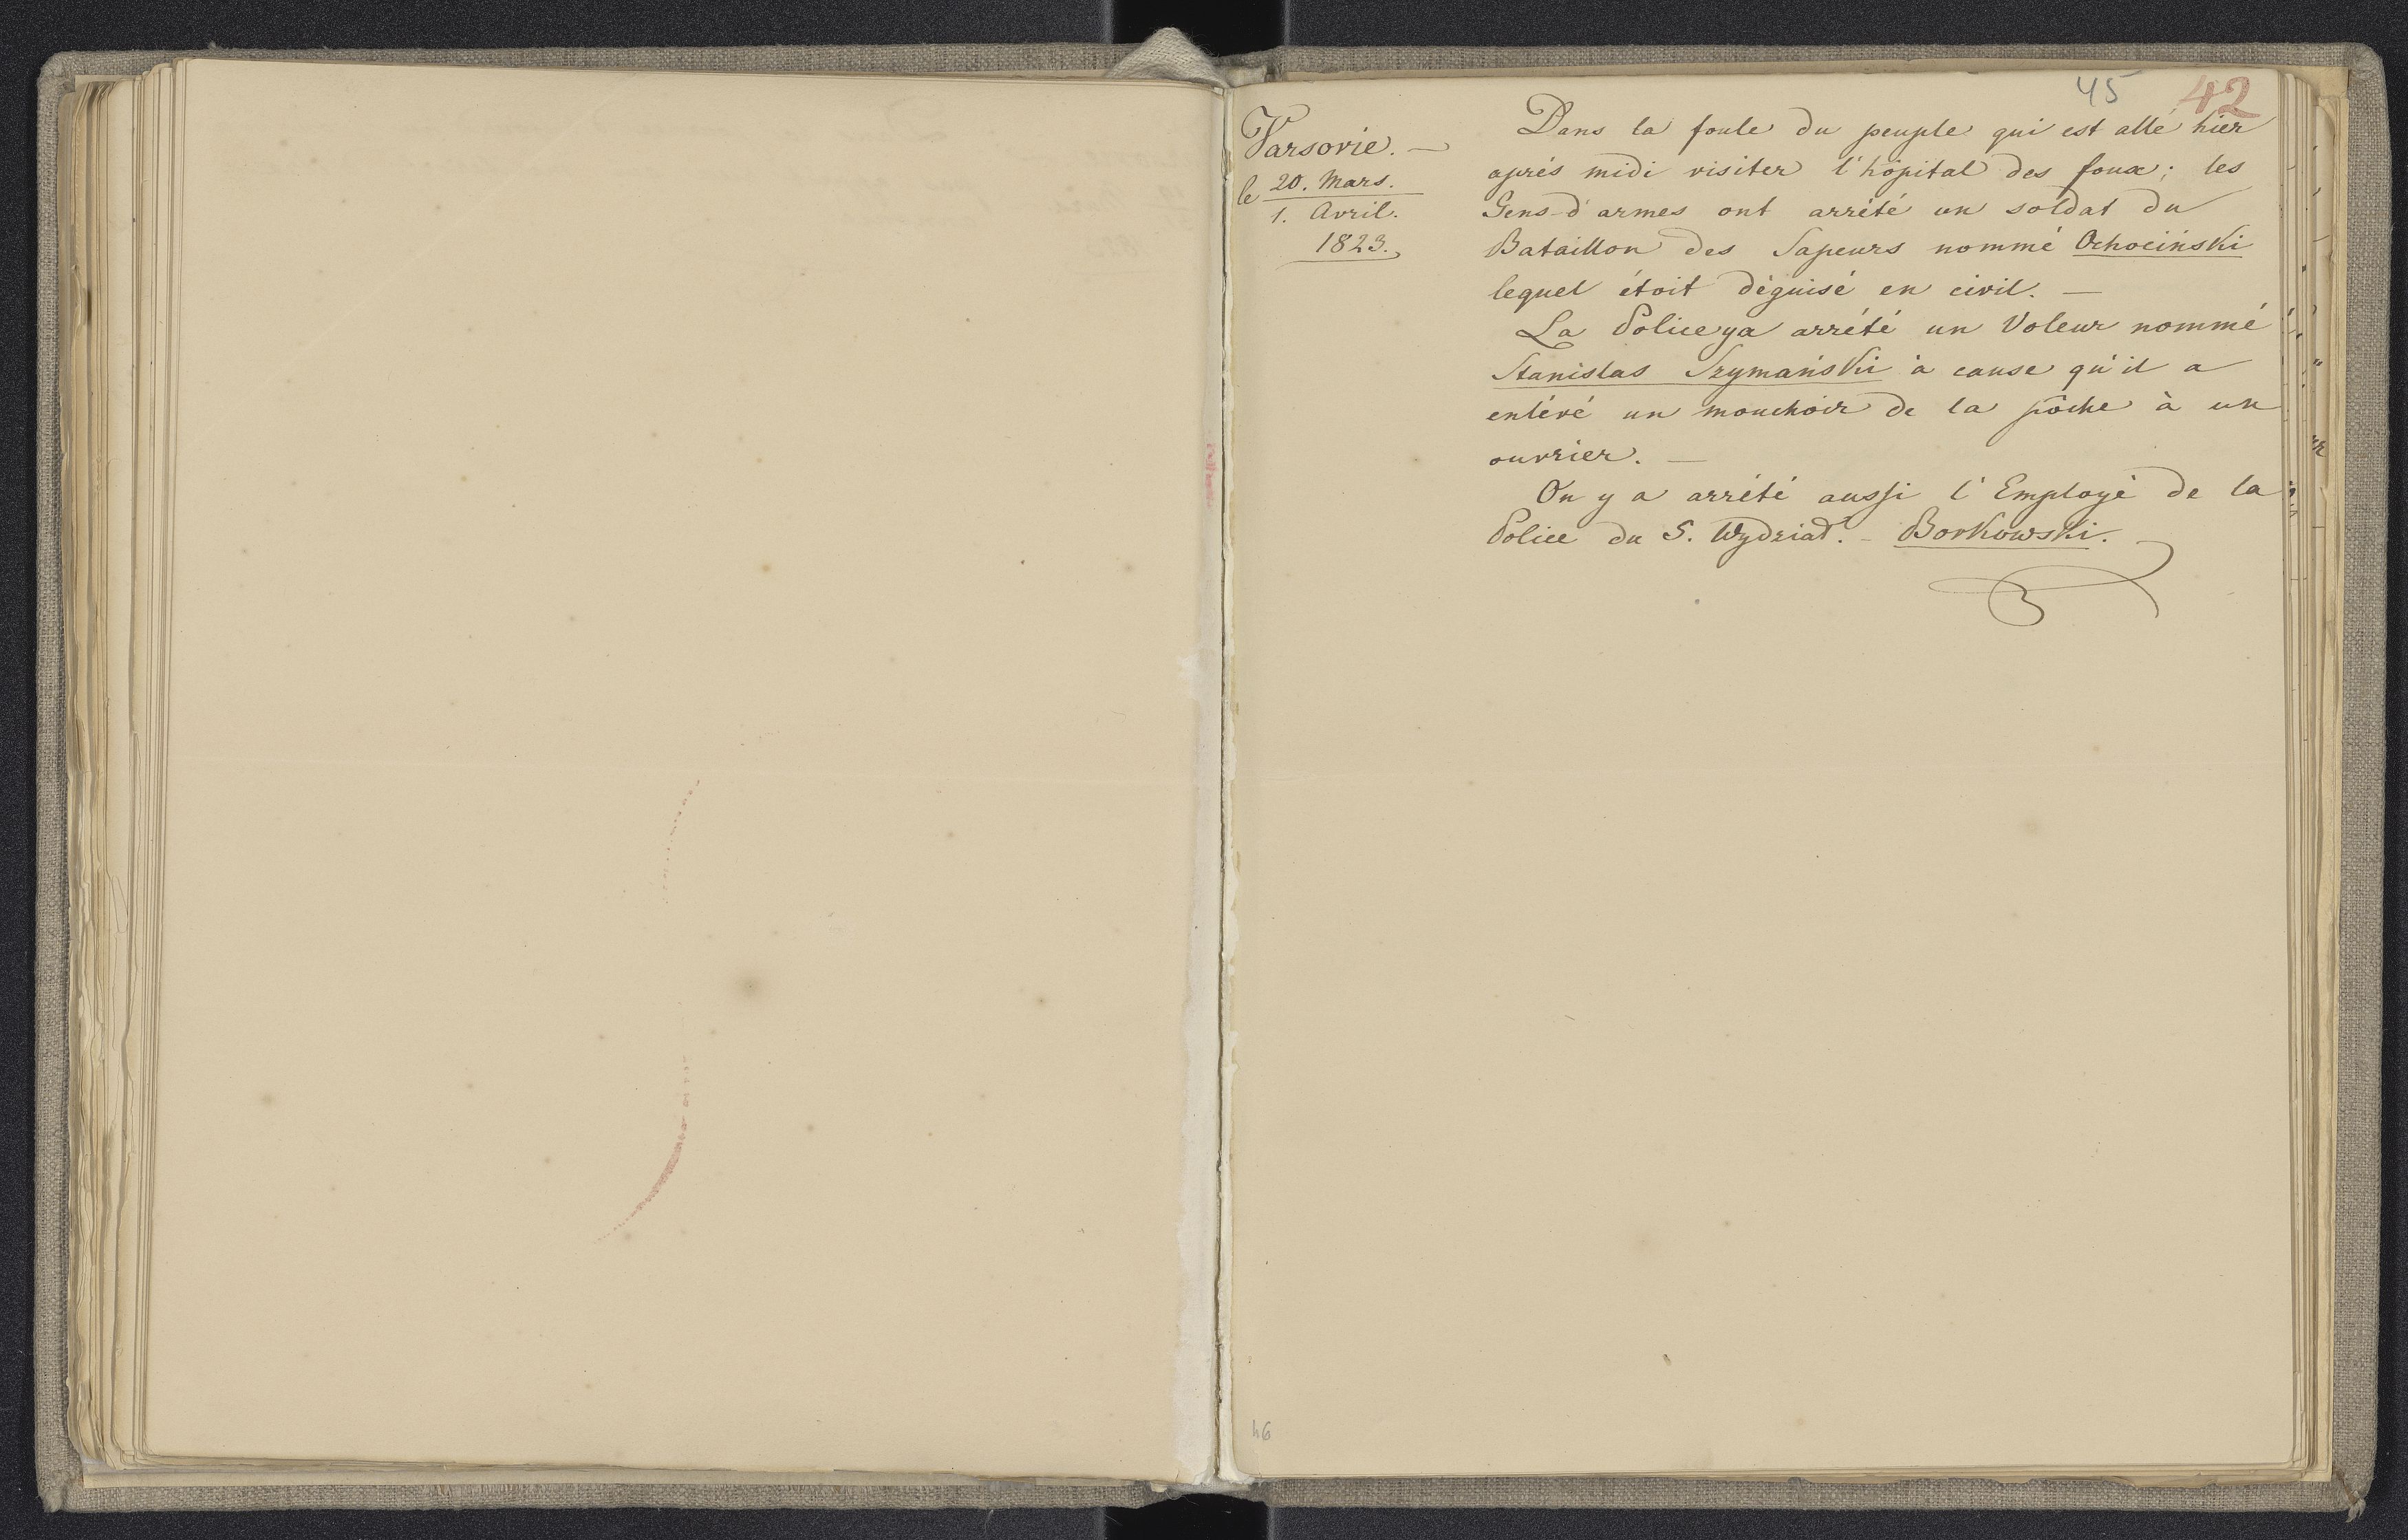 45 42
Varsovie. —
le 20. Mars.
1. Avril.
1823.
Dans la foule du peuple qui est allé hier
aprés midi visiter l'hôpital des foux; les
Gens-d'armes ont arrété un soldat du
Bataillon des Sapeurs nommé Ochociński
lequel étoit déguisé en civil. —
La Police y a arrété un Voleur nommé
Stanislas Szymański à cause qu'il a
enlévé un mouchoir de la pôche à un
ouvrier. —
On y a arrété aussi l'Employé de la
Police du 5. Wydział. – Borkowski.
46